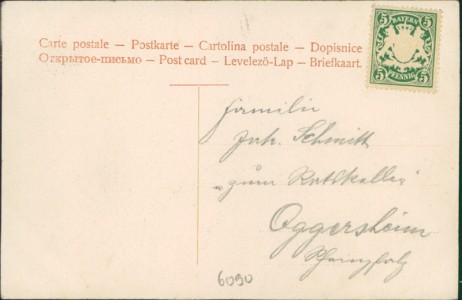 Carte postale – Postkarte – Cartolina postale – Dopisnice
Открытое-письмо – Post card – Levelező-Lap – Briefkaart.
5 BAYERN 5
5 PFENNIG 5
Familie
Joh. Schmitt
„zum Ratskeller"
Oggersheim
Rheinpfalz
6090